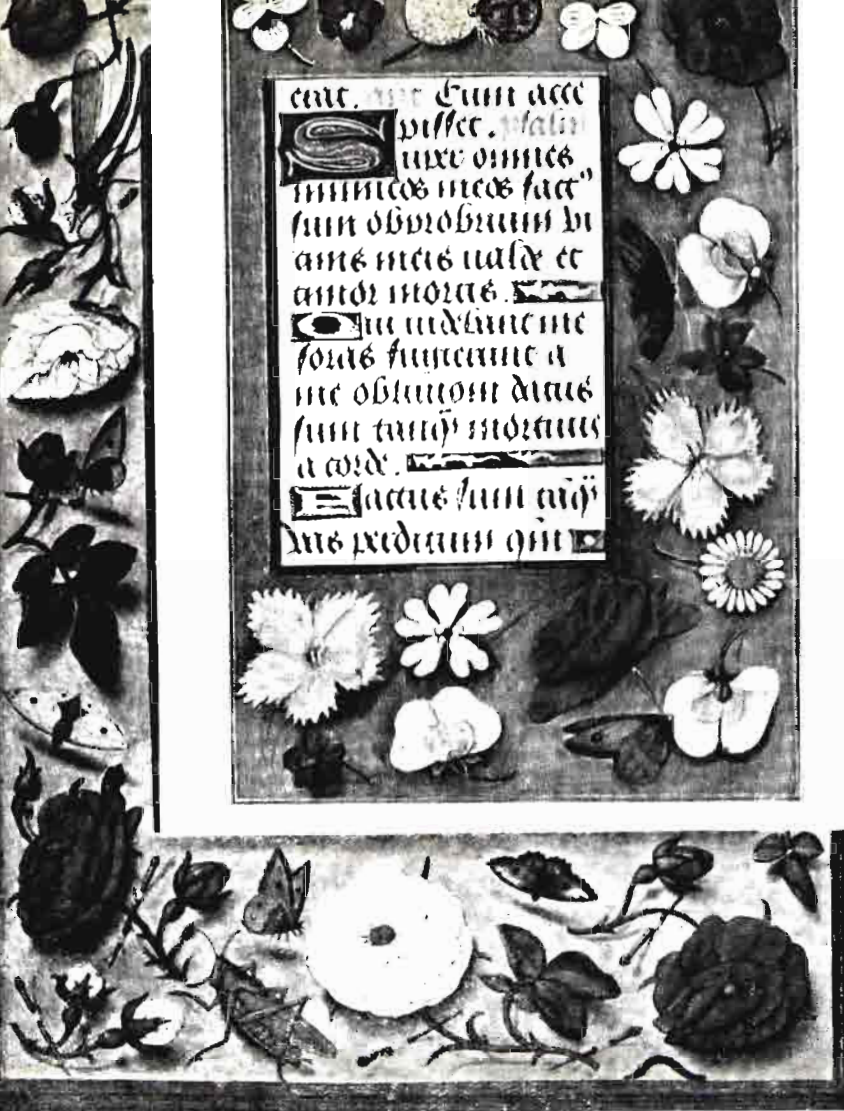 ciat. ant Cum acce
pisset. psalm
Supre omnes
inimicos meos fact⁹
sum obprobrium vi
cinis meis valde et
timor mortis.
Qui uidebant me
foras fugierunt a
me obliuioni datus
sum tanqȝ mortuus
a corde.
Factus sum tanqȝ
vas perditum qm